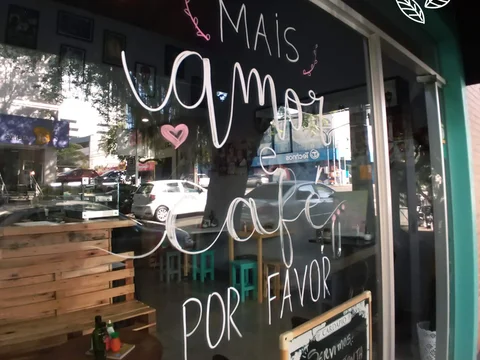 MAIS
amor
e
café
POR FAVOR!!
SERVIMOS